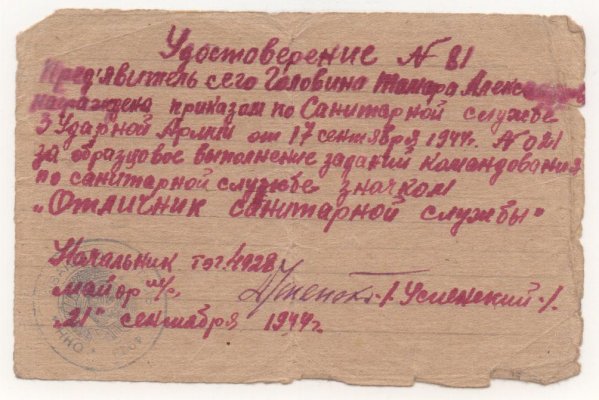 Удостоверение № 81
Пред'явитель сего Головина Тамара Александровна
награждена приказом по Санитарной службе
3 Ударной Армии от 17 сентября 1944г. № 021
за образцовое выполнение заданий командования
по санитарной службе значком
„Отличник санитарной службы"
Начальник тэг 4928
майор м/с /Успенский/.
„21" сентября 1944г.